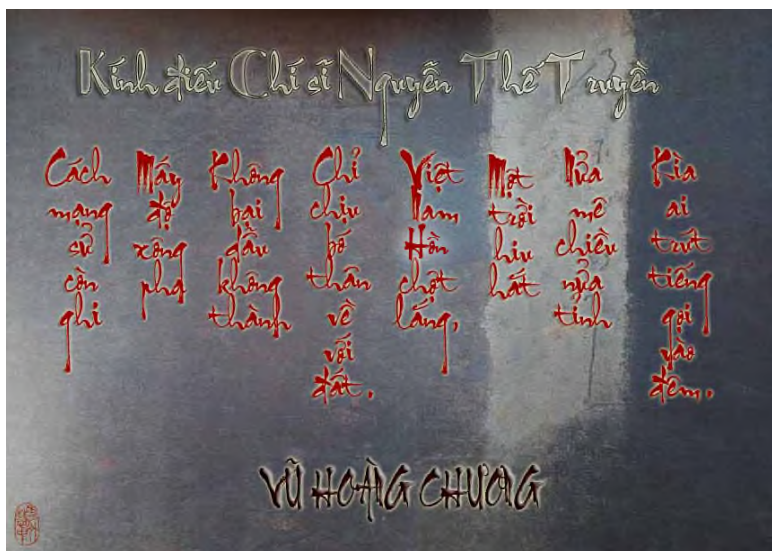 Kính điếu Chí sĩ Nguyễn Thế Truyền
Cách mạng sử còn ghi
Mấy độ xông pha
Không bại dẫu không thành
Chỉ chịu bó thân về với đất.
Việt Nam Hồn chợt lắng,
Một trời hiu hắt
Nửa mê chiều nửa tỉnh
Kìa ai trút tiếng gọi vào đêm.
VŨ HOÀNG CHƯƠNG